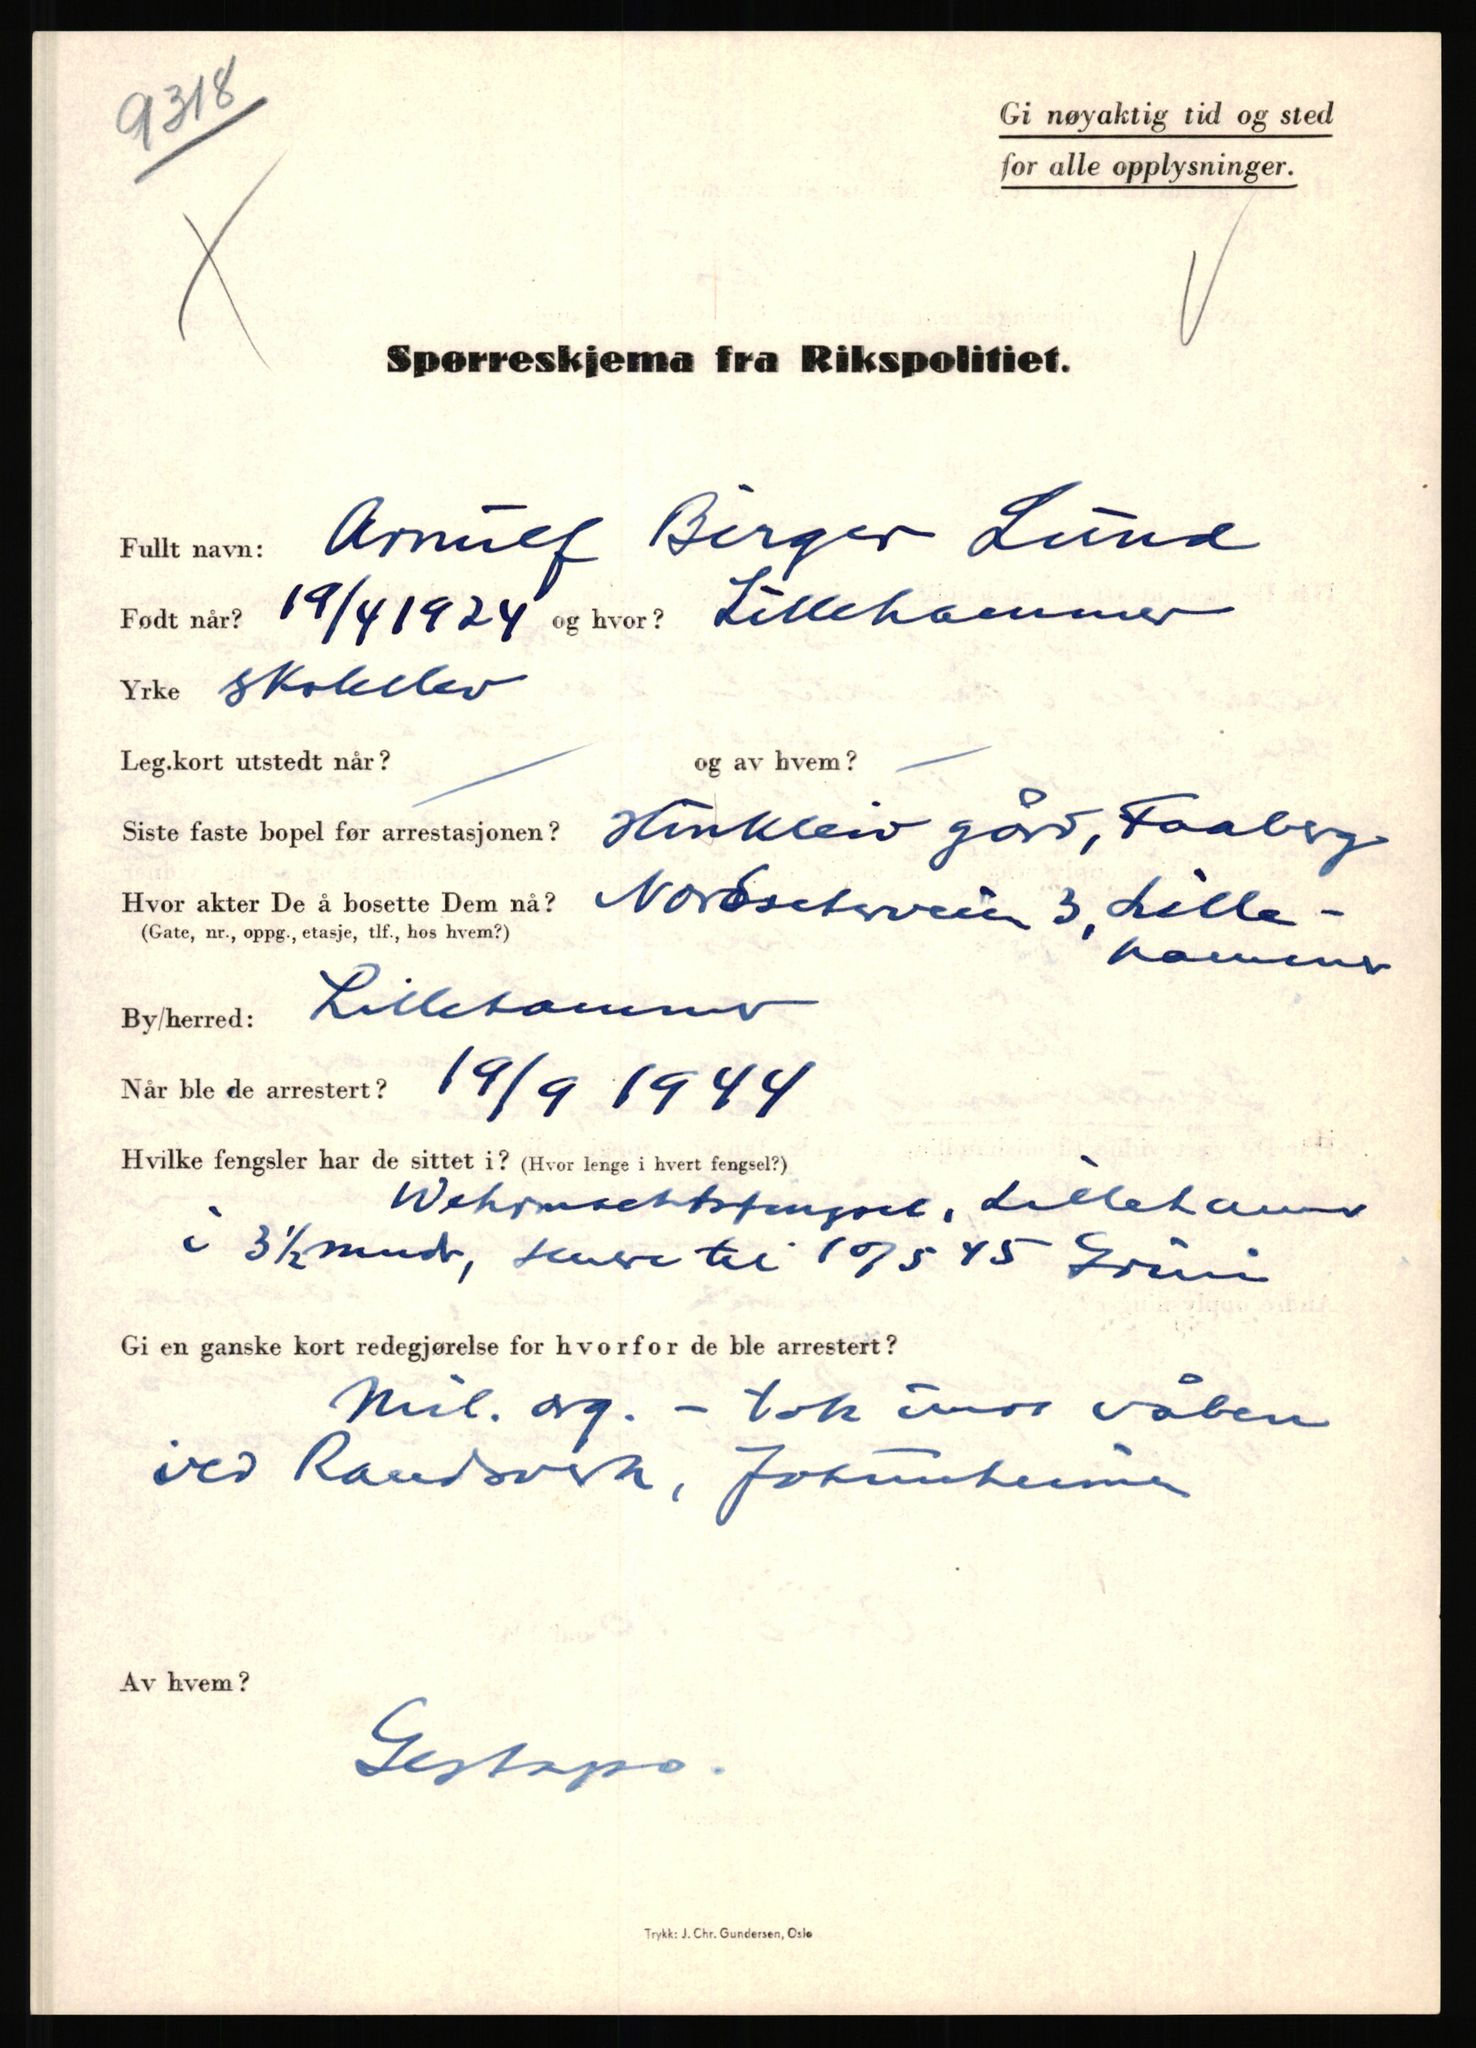 9318
Gi nøyaktig tid og sted
for alle opplysninger.
Spørreskjema fra Rikspolitiet.
Fullt navn: Arnulf Birger Lund
Født når? 19/4 1924 og hvor? Lillehammer
Yrke skoleelev
Leg.kort utstedt når? — og av hvem? —
Siste faste bopel før arrestasjonen? gård, Faaberg
Hvor akter De å bosette Dem nå? Nordseterveien 3, Lille-
(Gate, nr., oppg., etasje, tlf., hos hvem?) hammer
By/herred: Lillehammer
Når ble de arrestert? 19/9 1944
Hvilke fengsler har de sittet i? (Hvor lenge i hvert fengsel?)
Wehrmachtsfengsel, Lillehammer
i 3½ mndr, senere til 10/5 45 Grini
Gi en ganske kort redegjørelse for hvorfor de ble arrestert?
Mil. org. - tok imot våben
ved Randsverk, Jotunheimen
Av hvem?
Gestapo.
Trykk: J. Chr. Gundersen, Oslo